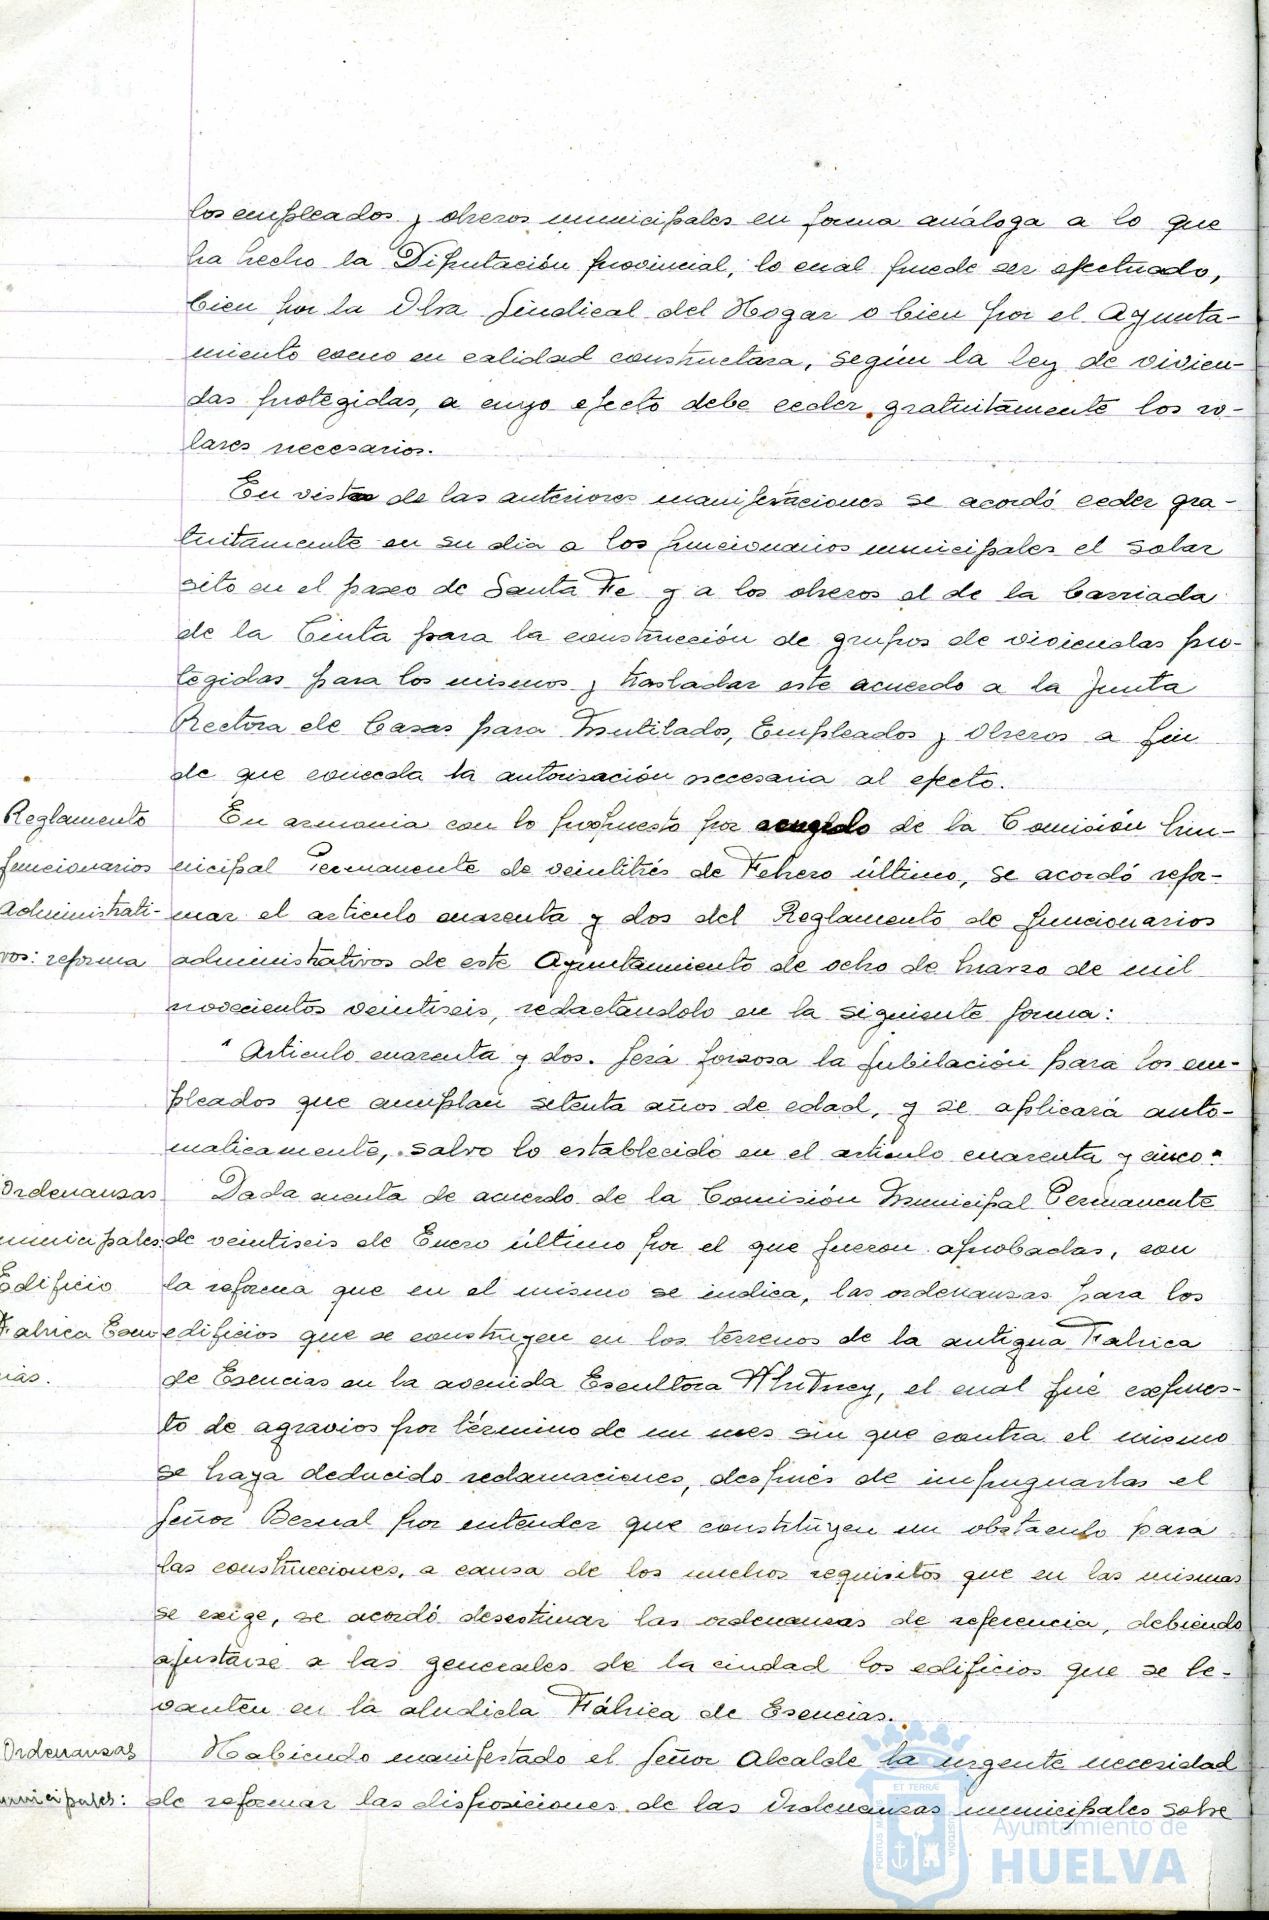 los empleados y obreros municipales en forma análoga a lo que
ha hecho la Diputación provincial, lo cual puede ser efectuado,
bien por la Obra Sindical del Hogar o bien por el Ayunta-
miento como en calidad constructora, según la ley de vivien-
das protegidas, a cuyo efecto debe ceder gratuitamente los so-
lares necesarios.
En vista de las anteriores manifestaciones se acordó ceder gra-
tuitamente en su dia a los funcionarios municipales el solar
sito en el paseo de Santa Fe y a los obreros el de la barriada
de la Cinta para la construcción de grupos de viviendas pro-
tegidas para los mismos y trasladar este acuerdo a la Junta
Rectora de Casas para Mutilados, Empleados y Obreros a fin
de que conceda la autorización necesaria al efecto.
Reglamento
funcionarios
administrati-
vos: reforma
En armonia con lo propuesto por acuerdo de la Comisión Mu-
nicipal Permanente de veintitrés de Febrero último, se acordó refor-
mar el articulo cuarenta y dos del Reglamento de funcionarios
administrativos de este Ayuntamiento de ocho de Marzo de mil
novecientos veintiseis, redactandolo en la siguiente forma:
"Articulo cuarenta y dos. Será forzosa la jubilación para los em-
pleados que cumplan setenta años de edad, y se aplicará auto-
maticamente, salvo lo establecido en el articulo cuarenta y cinco."
Ordenanzas
municipales:
Edificio
Fabrica Esen-
cias.
Dada cuenta de acuerdo de la Comisión Municipal Permanente
de veintiseis de Enero último por el que fueron aprobadas, con
la reforma que en el mismo se indica, las ordenanzas para los
edificios que se construyen en los terrenos de la antigua Fabrica
de Esencias en la avenida Escultora Whitney, el cual fué expues-
to de agravios por término de un mes sin que contra el mismo
se haya deducido reclamaciones, después de impugnarlas el
Señor Bernal por entender que constituyen un obstaculo para
las construcciones, a causa de los muchos requisitos que en las mismas
se exige, se acordó desestimar las ordenanzas de referencia, debiendo
ajustarse a las generales de la ciudad los edificios que se le-
vanten en la aludida Fábrica de Esencias.
Ordenanzas
municipales:
Habiendo manifestado el Señor Alcalde la urgente necesidad
de reformar las disposiciones de las Ordenanzas municipales sobre
PORTUS MARIS
ET TERRÆ
CUSTODIA
Ayuntamiento de
HUELVA